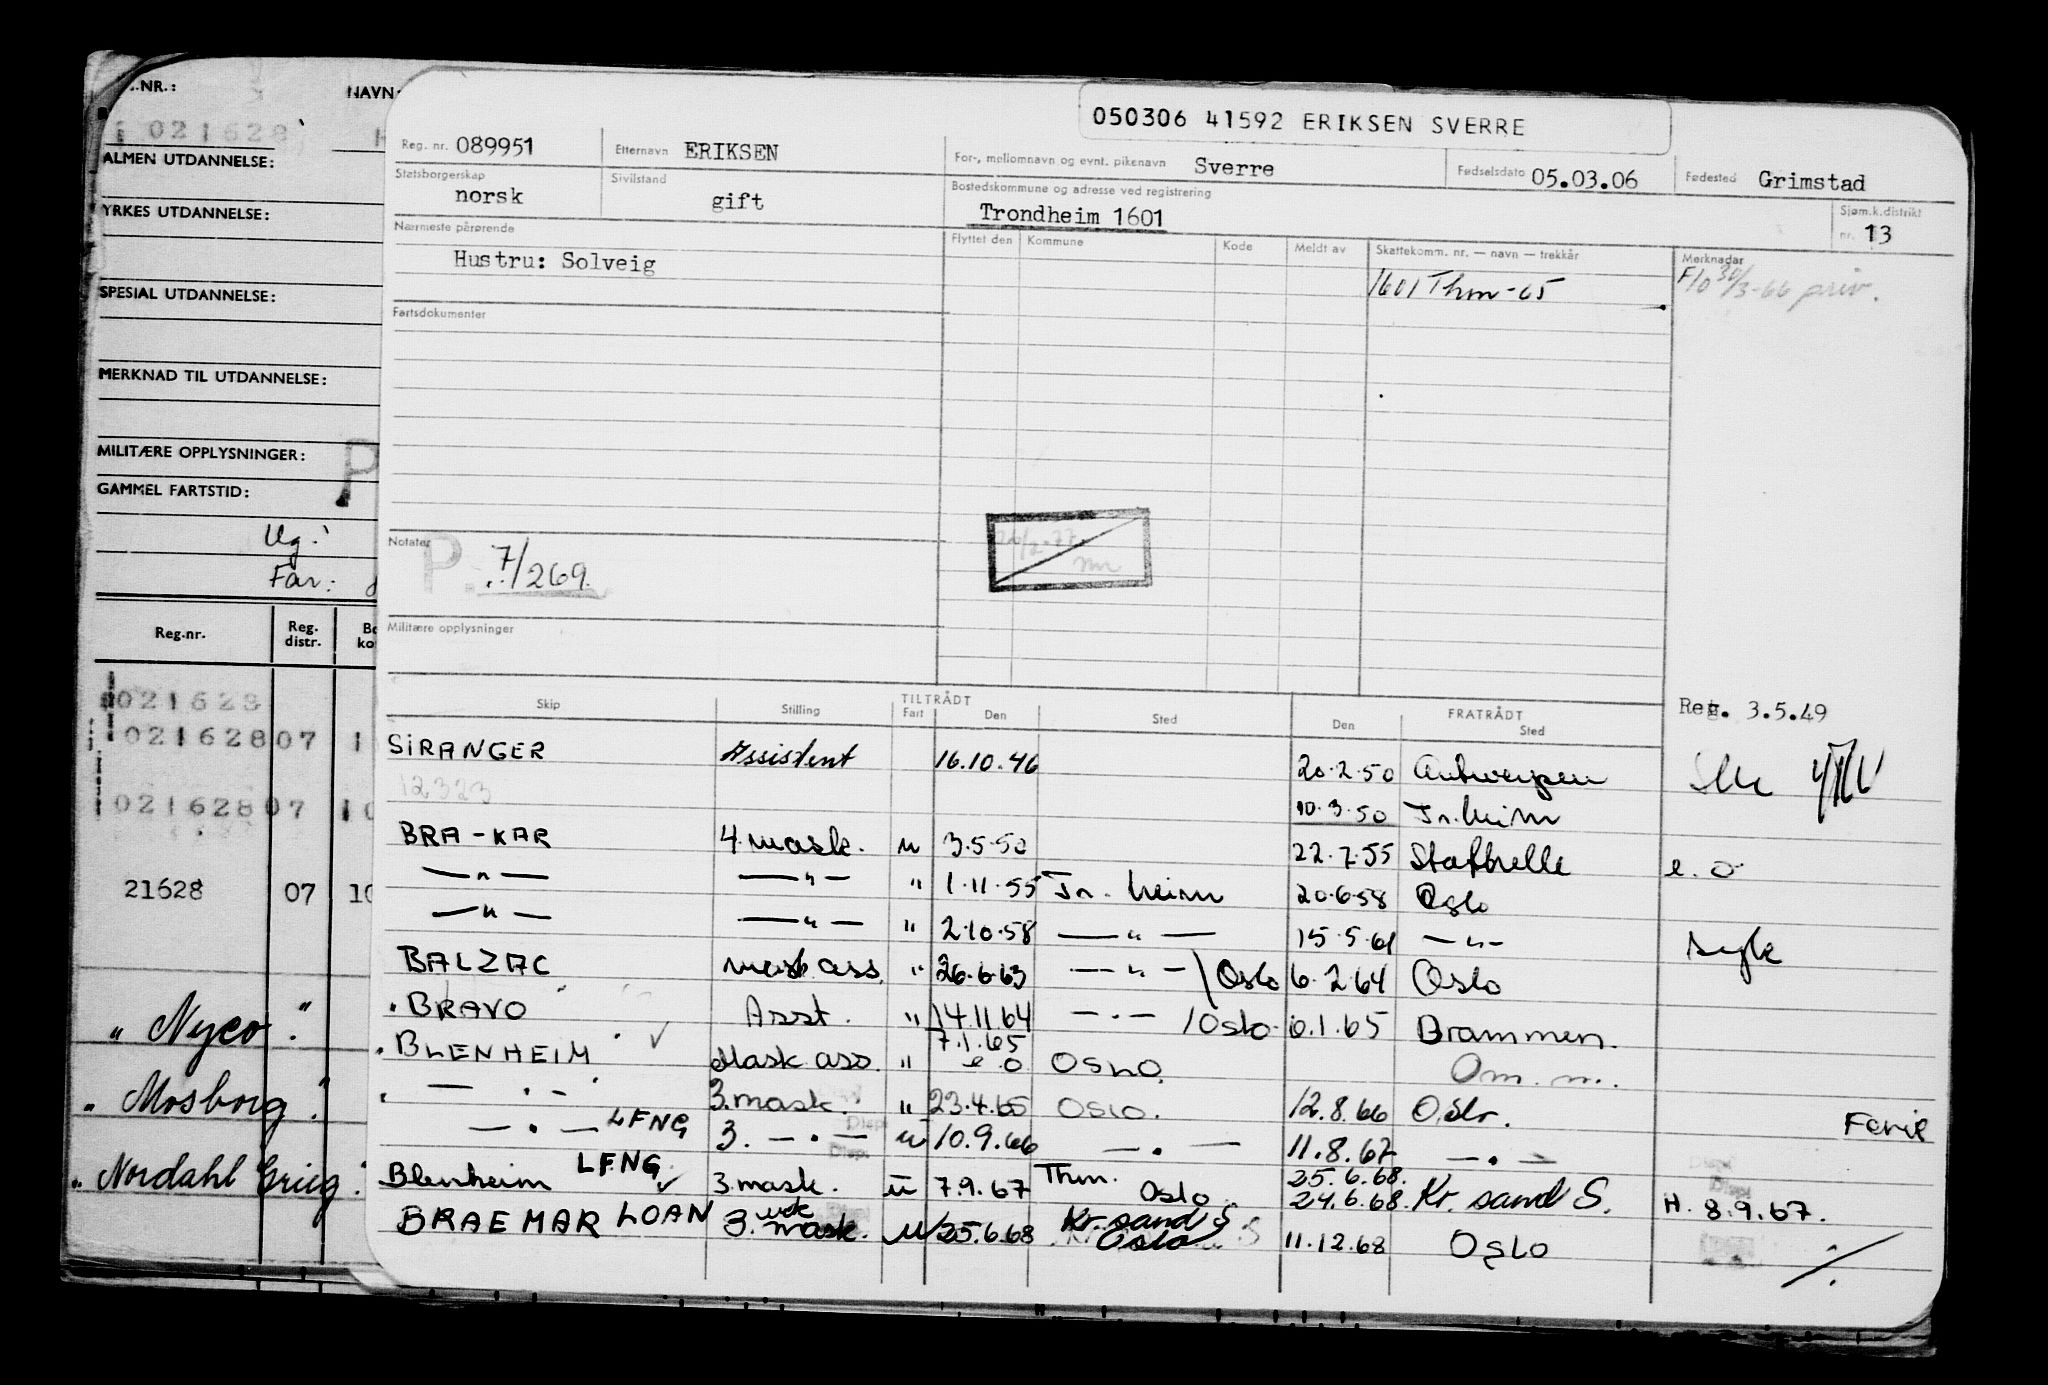 050306 41592 ERIKSEN SVERRE
Reg. nr. 089951 Etternavn ERIKSEN For-, mellomnavn og evnt. pikenavn Sverre Fødselsdato 05.03.06 Fødested Grimstad
Statsborgerskap norsk Sivilstand gift Bostedskommune og adresse ved registrering Trondheim 1601 Sjøm.k.distrikt nr. 13
Nærmeste pårørende Flyttet den Kommune Kode Meldt av Skattekomm. nr. — navn — trekkår Merknader
Hustru: Solveig 1601 Thm-65 F10 30/3-66 priv.
Fartsdokumenter
Notater P. 7/269.
Militære opplysninger
Reg. 3.5.49
TILTRÅDT FRATRÅDT
Skip Stilling Fart Den Sted Den Sted
SIRANGER Assistent 16.10.46 20.2.50 Antwerpen
12323 10.3.50 Tr.heim
BRA-KAR 4. mask. u 3.5.50 22.7.55 e.o
—"— —"— " 1.11.55 Tr. heim 20.6.58 Oslo
—"— —"— " 2.10.58 —"— 15.5.61 —"— syk
BALZAC mask ass. " 26.6.63 —"— / Oslo 6.2.64 Oslo
" BRAVO Asst. " 14.11.64 —"— / Oslo 6.1.65 Brammen.
" BLENHEIM Mask ass. " 7.1.65 e.o OSLO. Om. m.
" —"— 3. mask. " 23.4.65 OSLO. 12.8.66 Oslo. Ferie
—"— LFNG 3. —"— u 10.9.66 —"— 11.8.67 —"—
Blenheim LFNG 3. mask. u 7.9.67 Thm. Oslo 25.6.68. 24.6.68. Kr. sand S. H. 8.9.67.
BRAEMAR LOAN 3. mask. u 25.6.68 Kr. sand S Oslo 11.12.68 OSLO
NR.: NAVN:
021628
ALMEN UTDANNELSE:
YRKES UTDANNELSE:
SPESIAL UTDANNELSE:
MERKNAD TIL UTDANNELSE:
MILITÆRE OPPLYSNINGER: P
GAMMEL FARTSTID:
Ug.
Far:
Reg.nr. Reg. distr.
021628
021628 07
021628 07
21628 07 10
" Nyco "
" Mosborg "
" Nordahl Grieg "